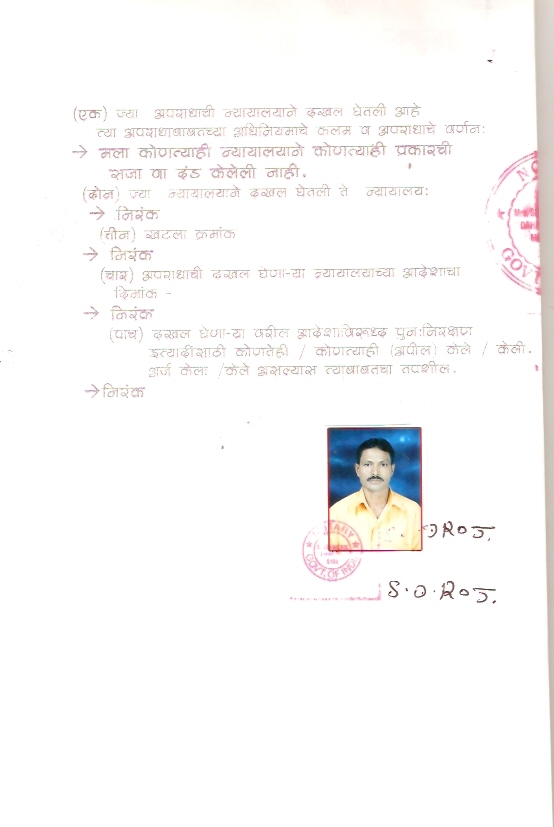 (एक) ज्या अपराधाची न्यायालयाने दखल घेतली आहे
त्या अपराधाबाबतच्या अधिनियमाचे कलम व अपराधाचे वर्णन:
→ मला कोणत्याही न्यायालयाने कोणत्याही प्रकारची
सजा वा दंड केलेली नाही.
(दोन) ज्या न्यायालयाने दखल घेतली ते न्यायालय:
→ निरंक
(तीन) खटला क्रमांक
→ निरंक
(चार) अपराधाची दखल घेणा-या न्यायालयाच्या आदेशाचा
दिनांक -
→ निरंक
(पाच) दखल घेणा-या वरील आदेशाविरूध्द पुन:निरक्षण
इत्यादीसाठी कोणतेही / कोणत्याही (अपील) केले / केली.
अर्ज केला /केले असल्यास त्याबाबतचा तपशील.
→ निरंक
GOVT. OF INDIA
S.O.ROJ.